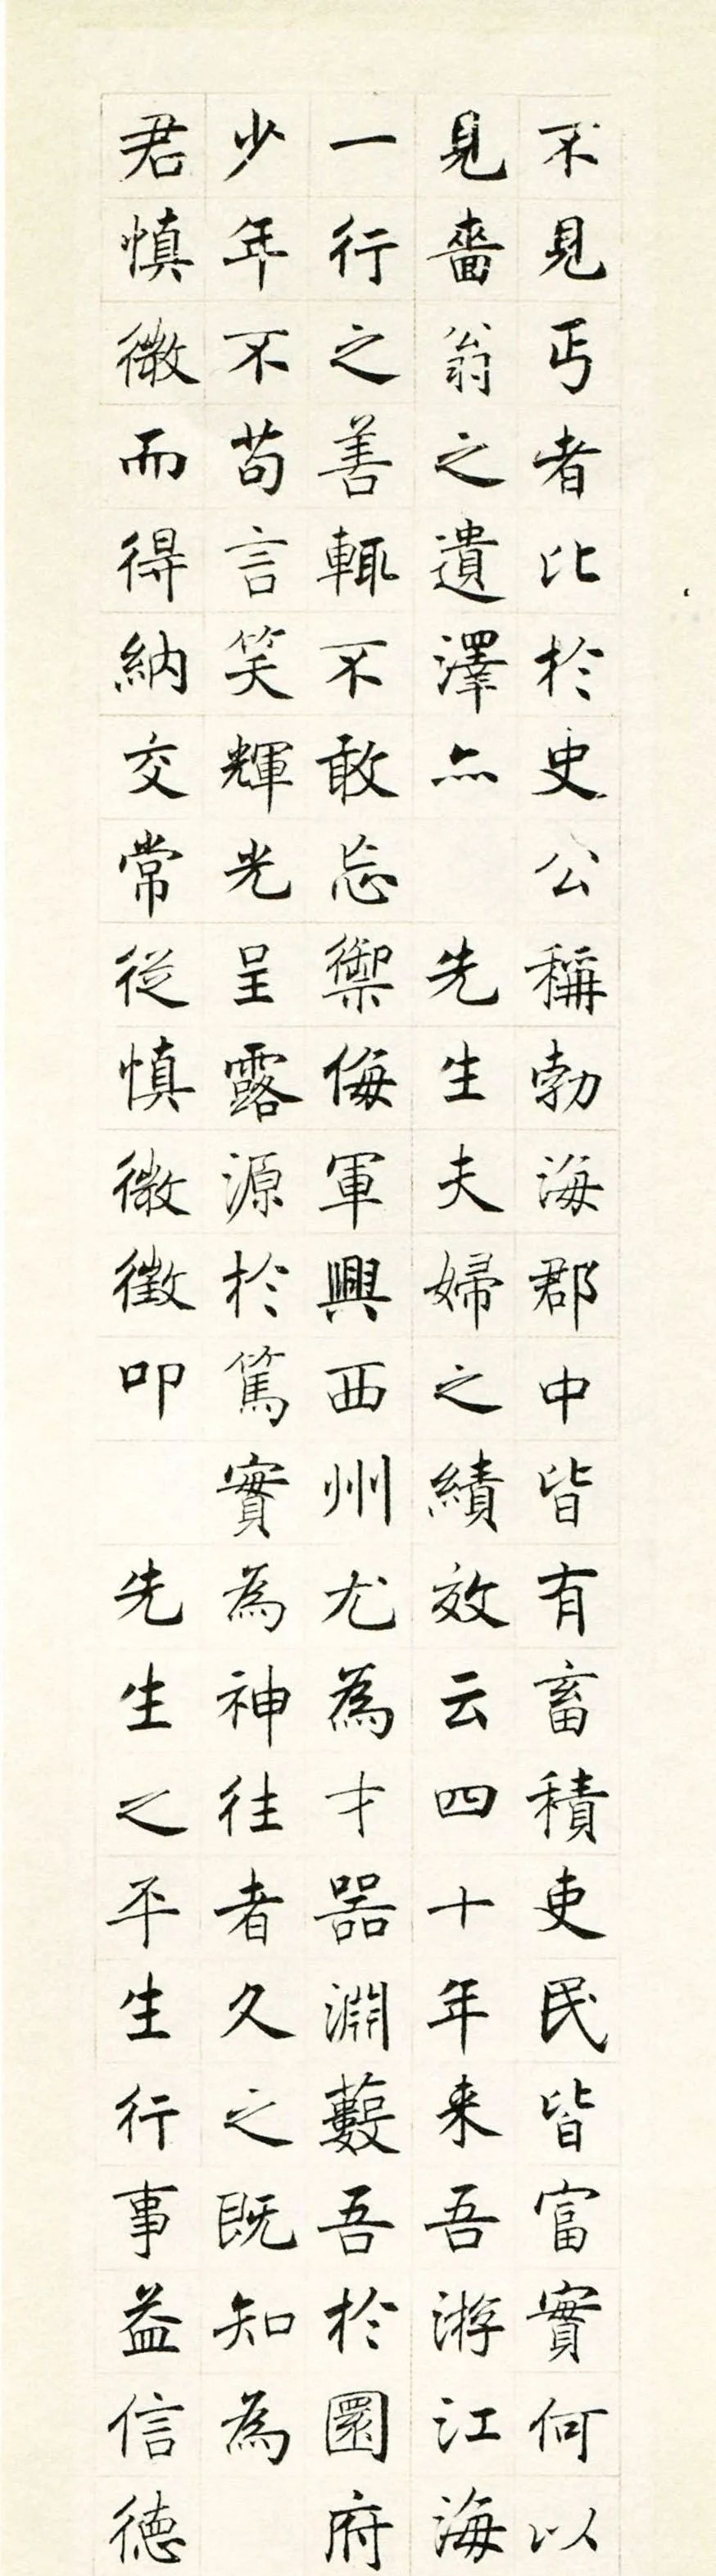 不見丐者比於史公稱勃海郡中皆有畜積吏民皆富實何以
見嗇翁之遺澤亦先生夫婦之績效云四十年来吾游江海
一行之善輒不敢忘禦侮軍興西州尤為才器淵藪吾於園府
少年不苟言笑輝光呈露源於篤實為神往者久之既知為
君慎微而得納交常從慎微徵叩先生之平生行事益信德